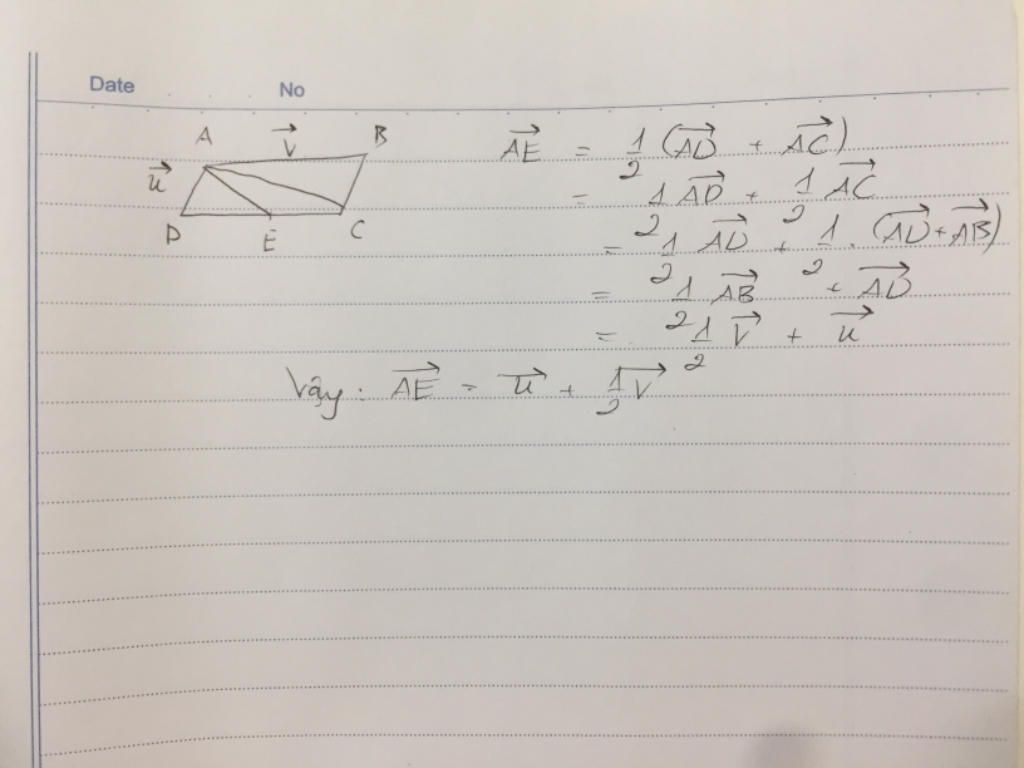 Date No
A \vec{v} B
\vec{u}
D E C
\vec{AE} = \frac{1}{2} (\vec{AD} + \vec{AC})
= \frac{1}{2} \vec{AD} + \frac{1}{2} \vec{AC}
= \frac{1}{2} \vec{AD} + \frac{1}{2} . (\vec{AD} + \vec{AB})
= \frac{1}{2} \vec{AB} + \vec{AD}
= \frac{1}{2} \vec{v} + \vec{u}
Vậy : \vec{AE} = \vec{u} + \frac{1}{2} \vec{v}